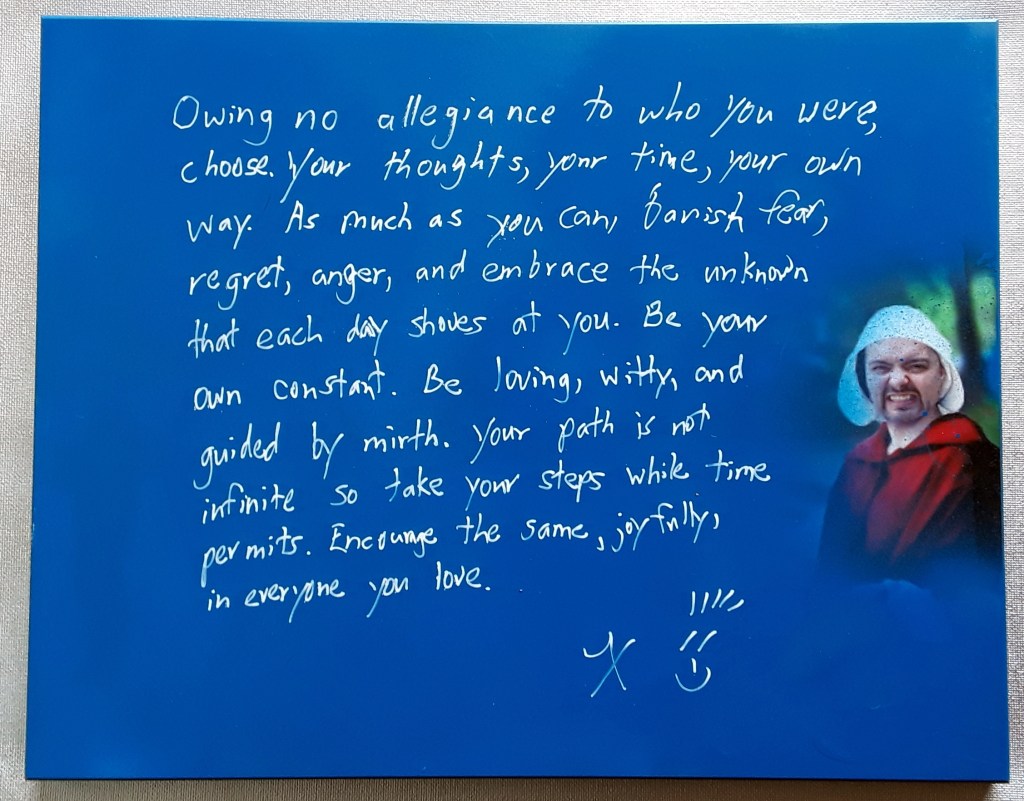 Owing no allegiance to who you were,
choose. Your thoughts, your time, your own
way. As much as you can, banish fear,
regret, anger, and embrace the unknown
that each day shoves at you. Be your
own constant. Be loving, witty, and
guided by mirth. Your path is not
infinite so take your steps while time
permits. Encourage the same, joyfully,
in everyone you love.
X